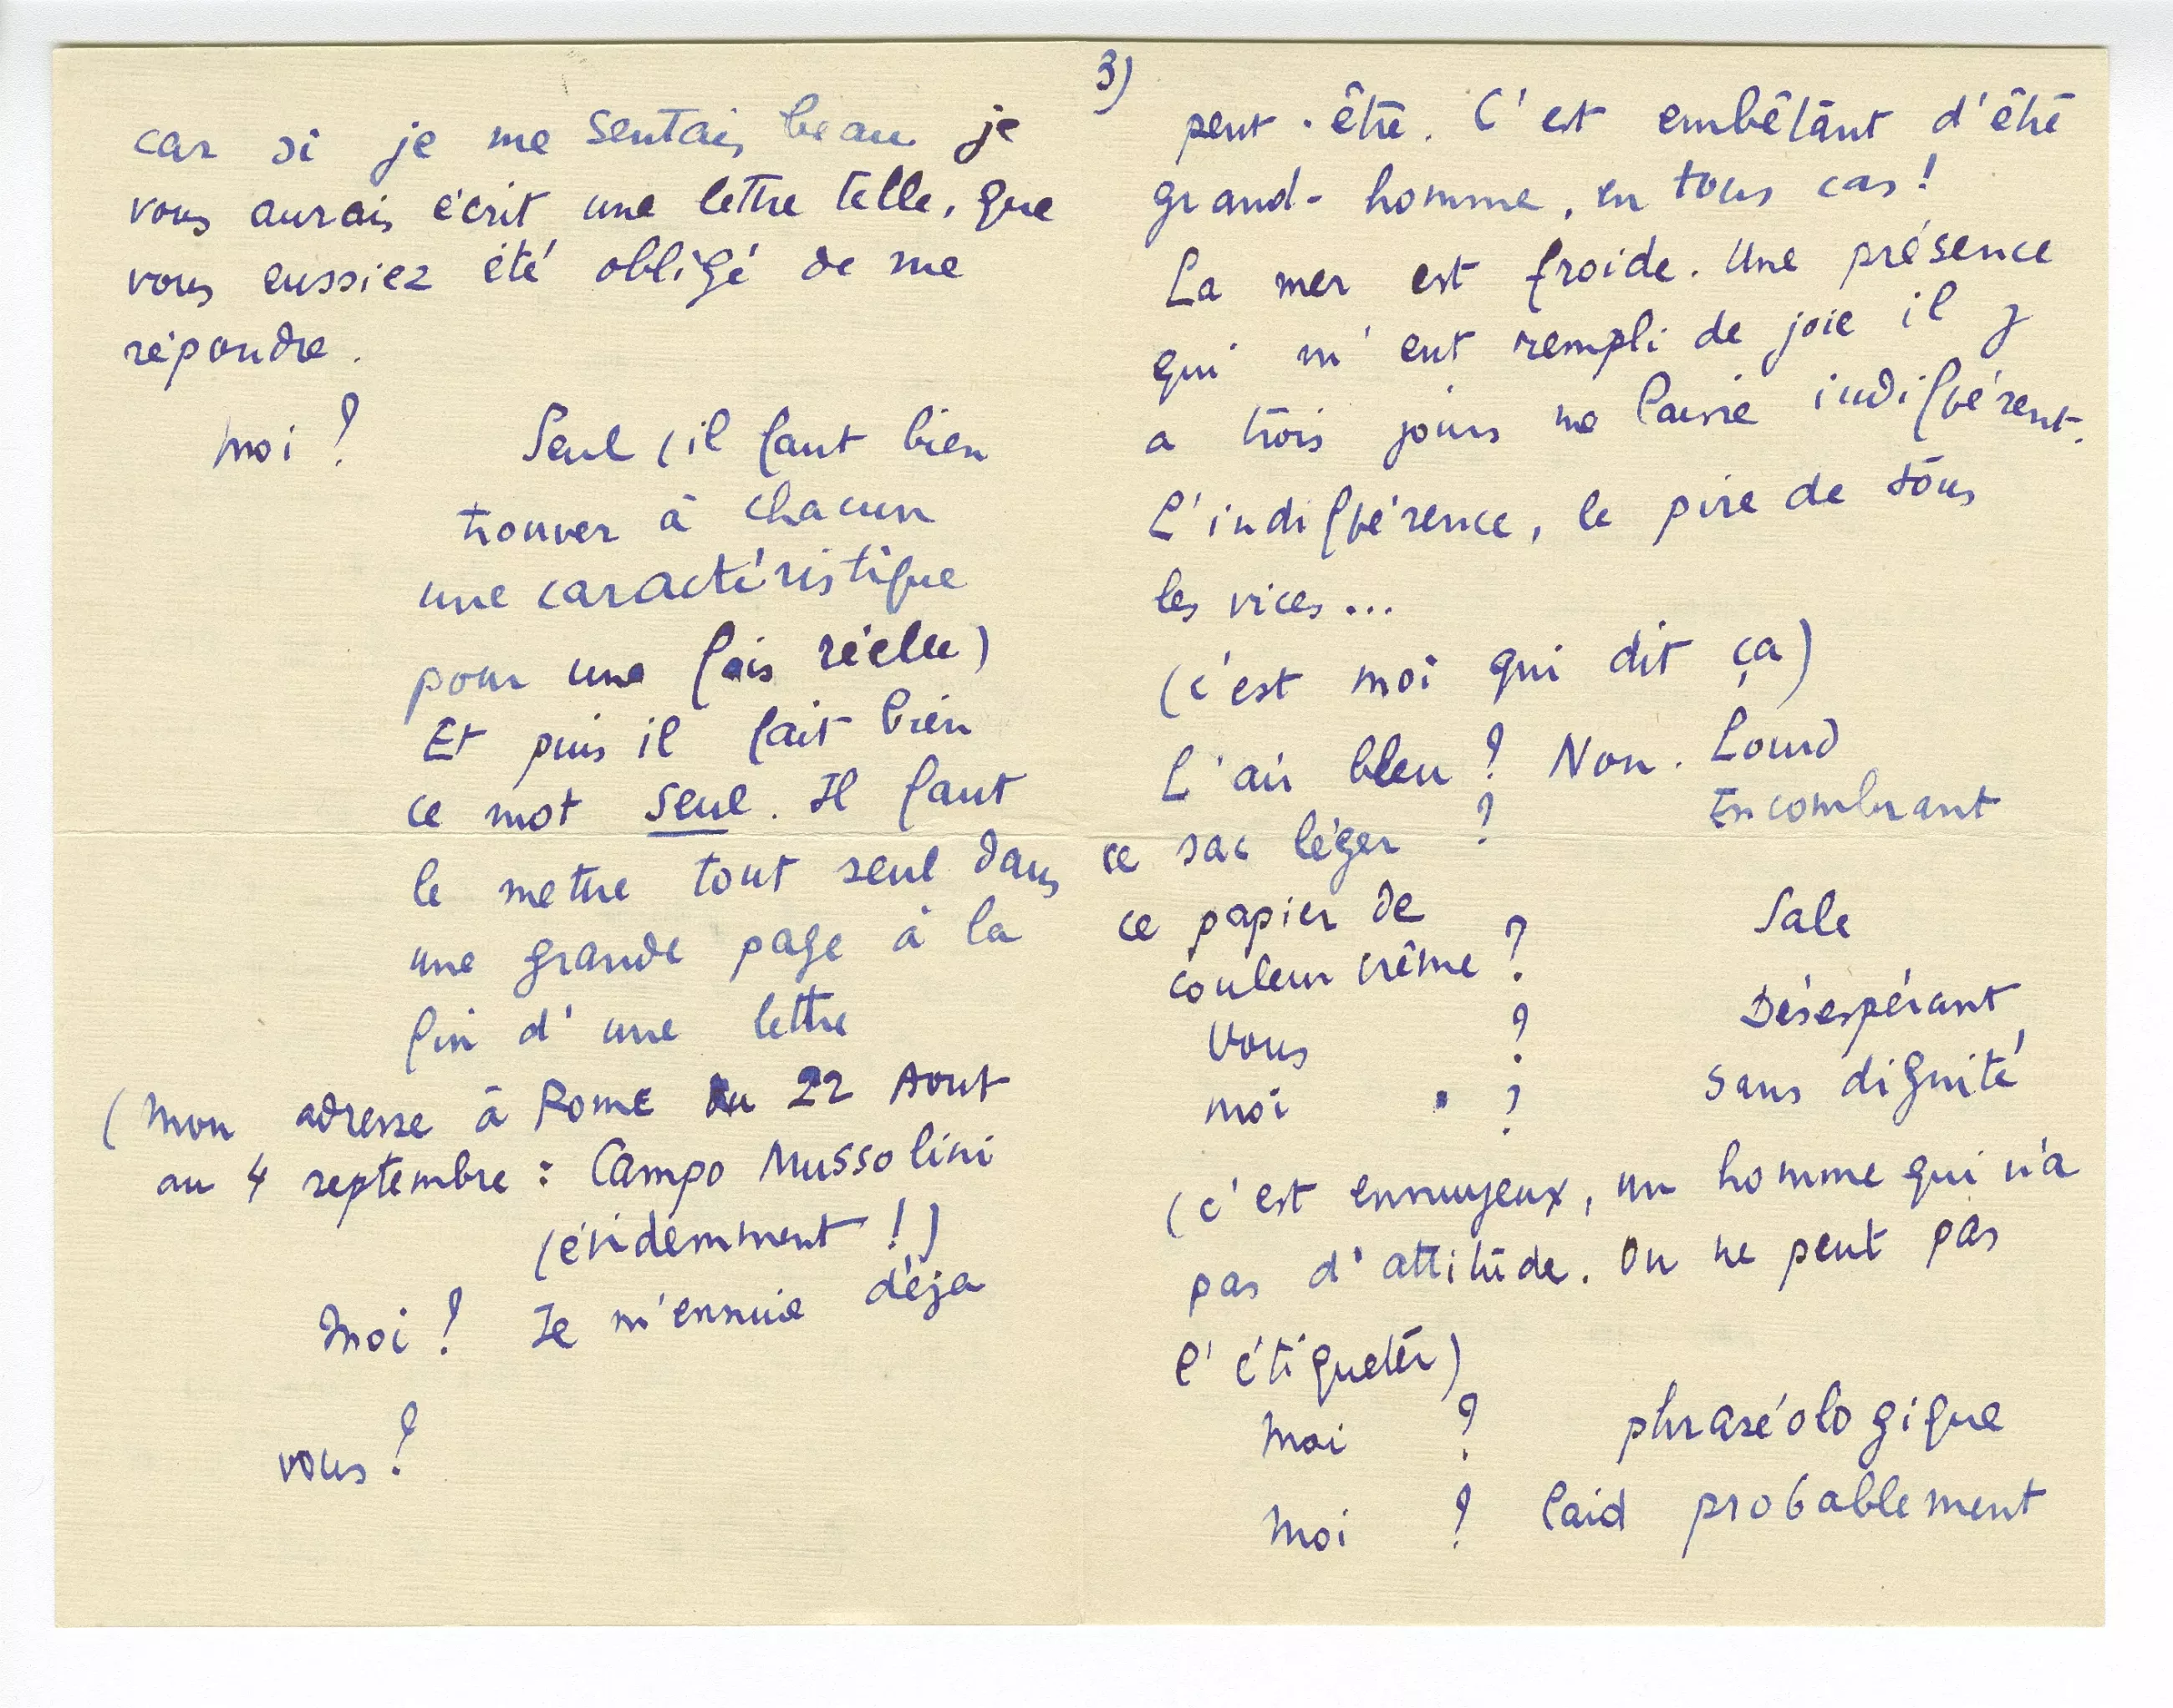 car si je me sentais beau je
vous aurais écrit une lettre telle, que
vous eussiez été obligé de me
répondre.
Moi ? Seul (il faut bien
trouver à chacun
une caractéristique
pour une fois réelle)
Et puis il fait bien
ce mot seul. Il faut
le mettre tout seul dans
une grande page à la
fin d'une lettre
(Mon adresse à Rome du 22 Aout
au 4 septembre : Campo Mussolini
(évidemment !)
Moi ? Je m'ennuie déja
vous ?
3)
peut-être. C'est embêtant d'être
grand-homme, en tous cas !
La mer est froide. Une présence
qui m'eut rempli de joie il y
a trois jours me laisse indifférent.
L'indifférence, le pire de tous
les vices...
(c'est moi qui dit ça)
L'air bleu ? Non. Lourd
ce sac léger ? Encombrant
ce papier de
couleur crême ? Sale
Vous ? Désespérant
moi ? Sans dignité
(c'est ennuyeux, un homme qui n'a
pas d'attitude. On ne peut pas
l'étiqueter)
Moi ? phraséologique
Moi ? laid probablement